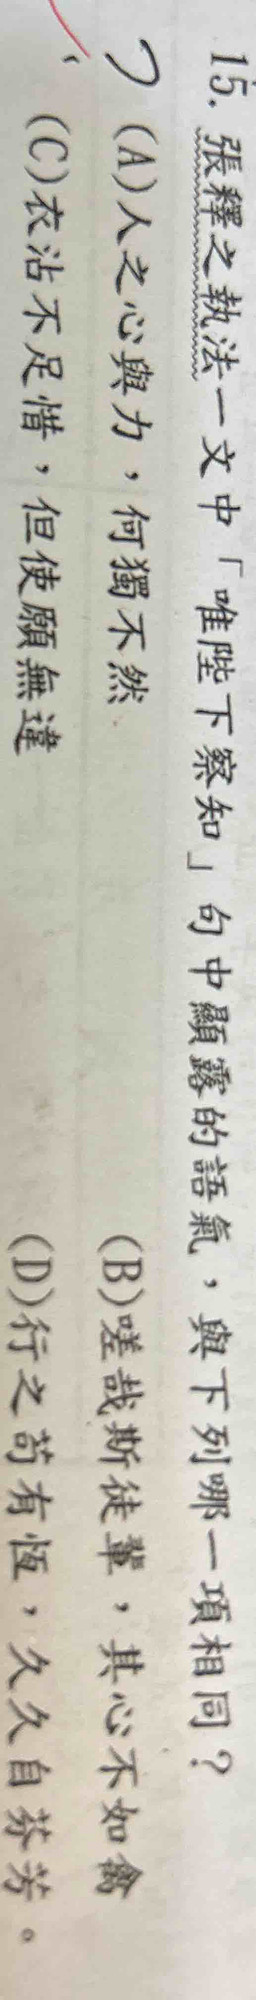 15. 張釋之執法一文中「唯陛下察知」句中顯露的語氣，與下列哪一項相同？
(A)人之心與力，何獨不然 (B)嗟哉斯徒輩，其心不如禽
(C)衣沾不足惜，但使願無違 (D)行之苟有恆，久久自芬芳。